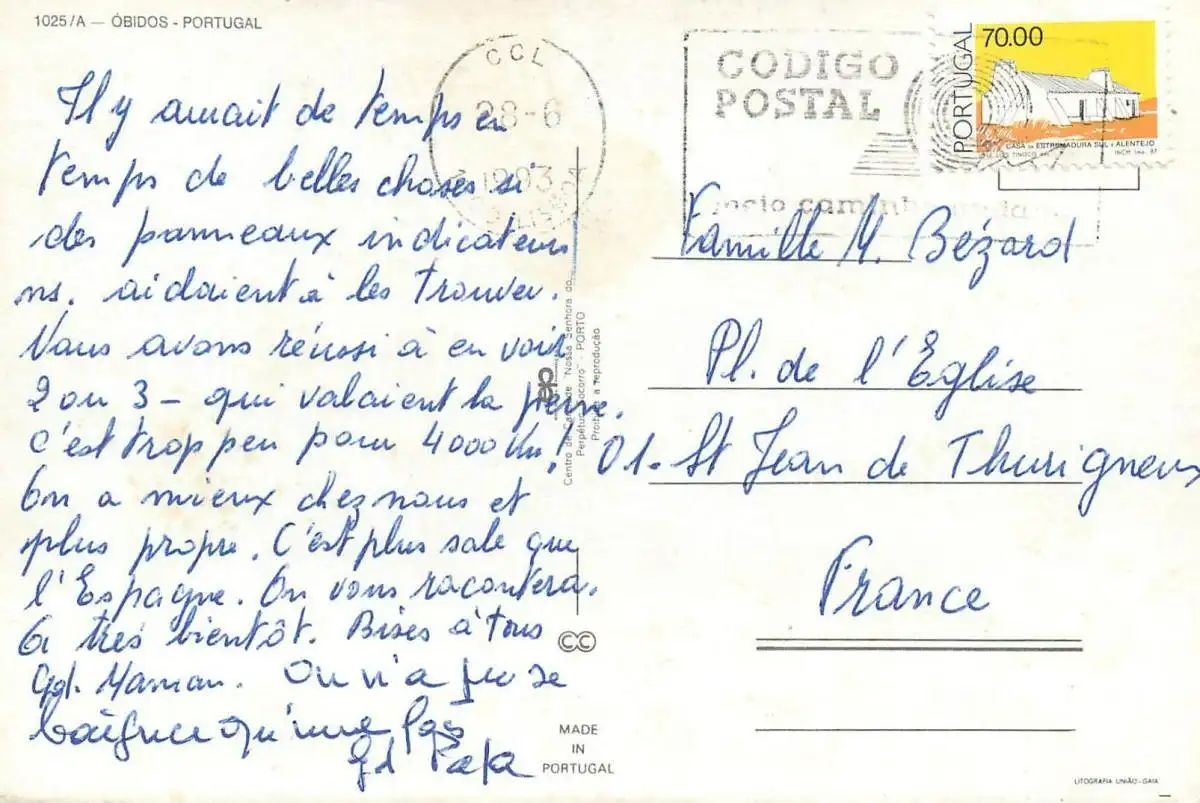 1025/A — ÓBIDOS - PORTUGAL
Il y aurait de temps en
temps de belles choses si
des panneaux indicateurs
ns. aidaient à les trouver.
Nous avons réussi à en voir
2 ou 3 - qui valaient la peine.
C'est trop peu pour 4000 km!
On a mieux chez nous et
plus propre. C'est plus sale que
l'Espagne. On vous racontera.
A très bientôt. Bises à tous
Gd. Maman. On n'a pu se
baigner qu'une fois
Gd Papa
CCL
28-6
CODIGO
POSTAL
meio caminho
PORTUGAL
70.00
CASA DA ESTREMADURA SUL E ALENTEJO
JOSÉ LUÍS TINOCO
INCM
Famille M. Bézard
Pl. de l'Eglise
01. St Jean de Thurigneux
France
Centro de Caridade "Nossa Senhora do
Perpétuo Socorro" - PORTO
Proibida a reprodução
MADE
IN
PORTUGAL
LITOGRAFIA UNIÃO-GAIA